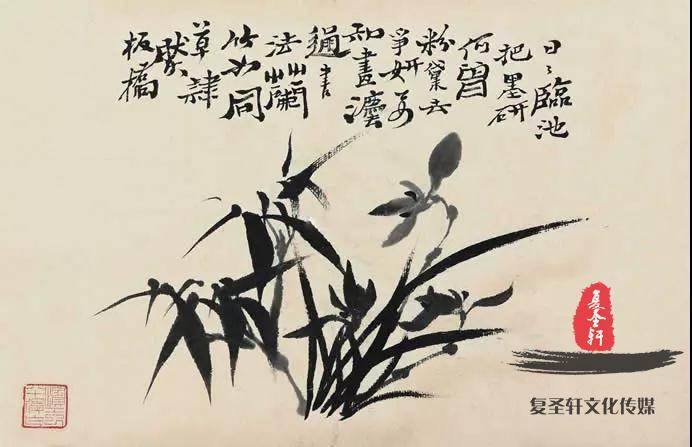 日〻臨池
把墨研
何曾
粉黛去
爭妍要
知畫灋
通書
法蘭
竹如同
草隸
然
板橋
复圣轩
复圣轩文化传媒